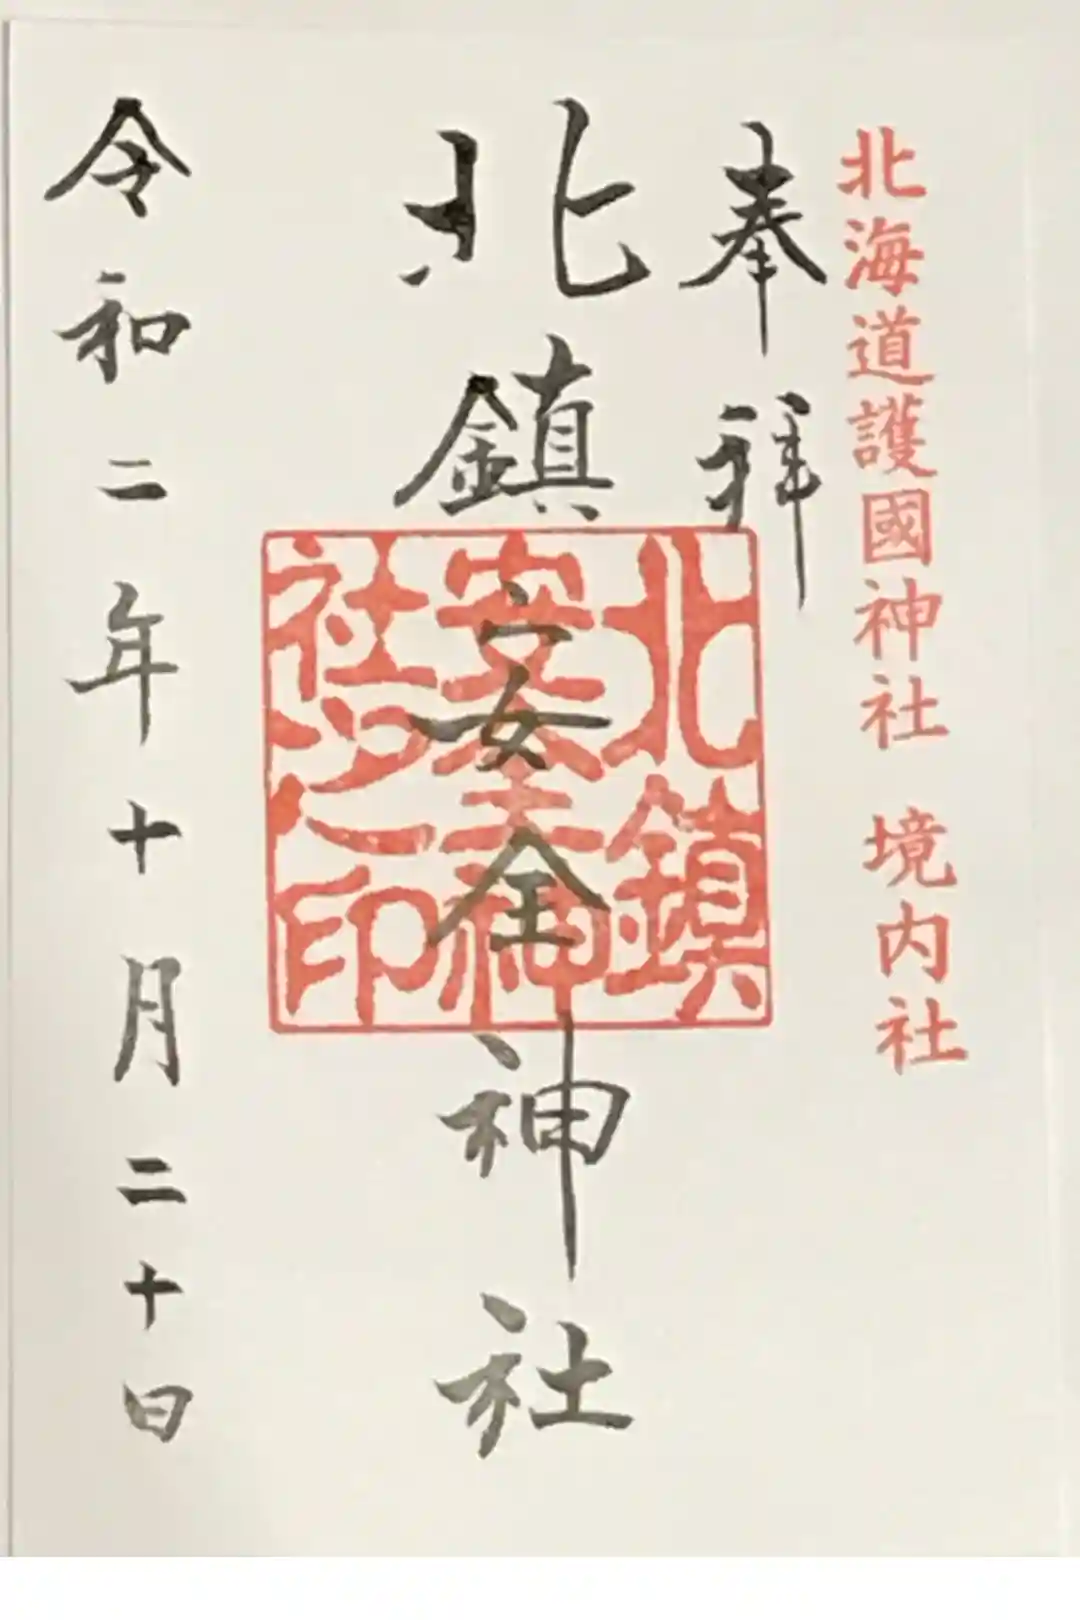 北海道護國神社 境内社
奉拜
北鎮安全神社
北鎮
安全神
社之印
令和二年十月二十日